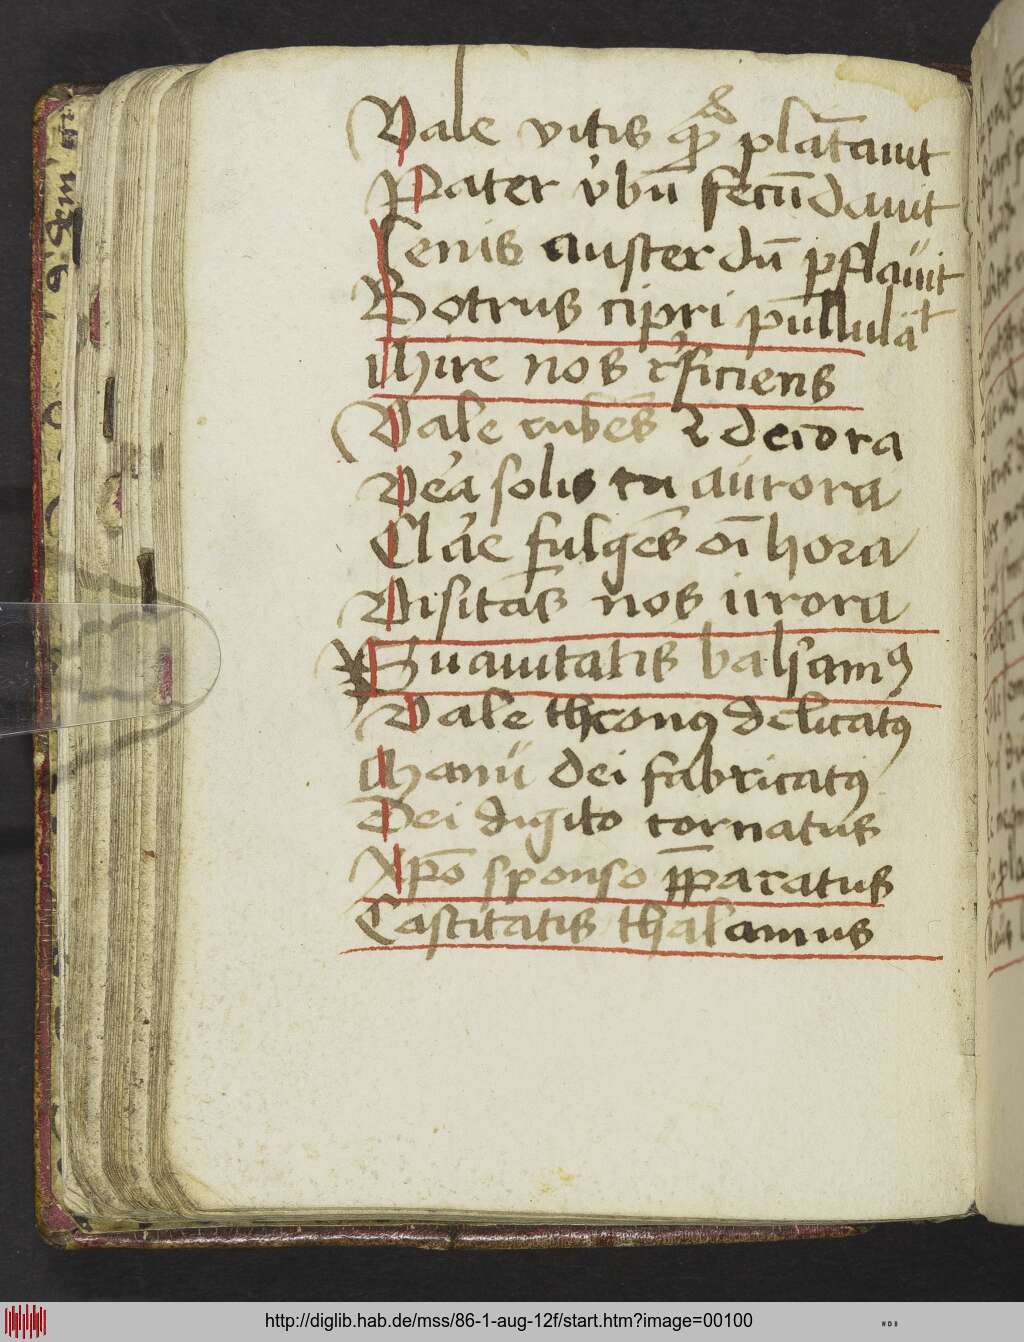 Vale vitis qᷓ plātauit
Pater v̓bū fecūdauit
Lenis auster dū pflauit
Botrus cipri pullulat
Mire nos r̓ficiens
Vale rubēs & decora
Ve̓a solis tu aurora
Cla̓e fulgēs oī hora
Visitās nos irrora
Suauitatis balsamꝰ
Vale thronꝰ delicatꝰ
Manu dei fabricatꝰ
Dei digito tornatus
Xpō sponso p̄paratus
Castitatis thalamus
http://diglib.hab.de/mss/86-1-aug-12f/start.htm?image=00100